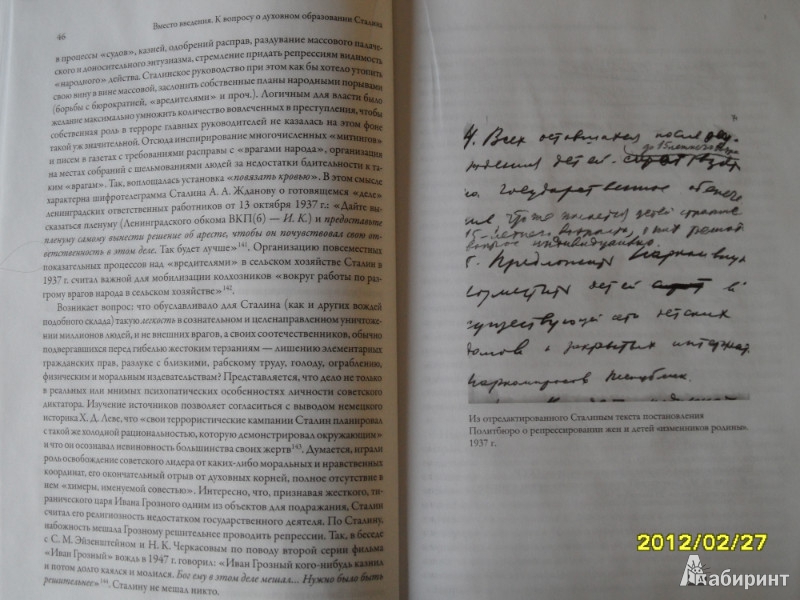 46
Вместо введения. К вопросу о духовном образовании Сталина
в процессы «судов», казней, одобрений расправ, раздувание массового палаче-
ского и доносительного энтузиазма, стремление придать репрессиям видимость
«народного» действа. Сталинское руководство при этом как бы хотело утопить
свою вину в вине массовой, заслонить собственные планы народными порывами
(борьбы с бюрократией, «вредителями» и проч.). Логичным для власти было
желание максимально умножить количество вовлеченных в преступления, чтобы
собственная роль в терроре главных руководителей не казалась на этом фоне
такой уж значительной. Отсюда инспирирование многочисленных «митингов»
и писем в газетах с требованиями расправы с «врагами народа», организация
на местах собраний с шельмованиями людей за недостатки бдительности к та-
ким «врагам». Так, воплощалась установка «повязать кровью». В этом смысле
характерна шифротелеграмма Сталина А. А. Жданову о готовящемся «деле»
ленинградских ответственных работников от 13 октября 1937 г.: «Дайте вы-
сказаться пленуму (Ленинградского обкома ВКП(б) — И. К.) и предоставьте
пленуму самому вынести решение об аресте, чтобы он почувствовал свою от-
ветственность в этом деле. Так будет лучше»141. Организацию повсеместных
показательных процессов над «вредителями» в сельском хозяйстве Сталин в
1937 г. считал важной для мобилизации колхозников «вокруг работы по раз-
грому врагов народа в сельском хозяйстве»142.
Возникает вопрос: что обуславливало для Сталина (как и других вождей
подобного склада) такую легкость в сознательном и целенаправленном уничтоже-
нии миллионов людей, и не внешних врагов, а своих соотечественников, обычно
подвергавшихся перед гибелью жестоким терзаниям — лишению элементарных
гражданских прав, разлуке с близкими, рабскому труду, голоду, ограблению,
физическим и моральным издевательствам? Представляется, что дело не только
в реальных или мнимых психопатических особенностях личности советского
диктатора. Изучение источников позволяет согласиться с выводом немецкого
историка Х. Д. Леве, что «свои террористические кампании Сталин планировал
с такой же холодной рациональностью, которую демонстрировал окружающим»
и что он осознавал невиновность большинства своих жертв143. Думается, играли
роль освобождение советского лидера от каких-либо моральных и нравственных
координат, его окончательный отрыв от духовных корней, полное отсутствие в
нем «химеры, именуемой совестью». Интересно, что, признавая жесткого, ти-
ранического царя Ивана Грозного одним из объектов для подражания, Сталин
считал его религиозность недостатком государственного деятеля. По Сталину,
набожность мешала Грозному решительнее проводить репрессии. Так, в беседе
с С. М. Эйзенштейном и Н. К. Черкасовым по поводу второй серии фильма
«Иван Грозный» вождь в 1947 г. говорил: «Иван Грозный кого-нибудь казнил
и потом долго каялся и молился. Бог ему в этом деле мешал... Нужно было быть
решительнее»144. Сталину не мешал никто.
4. Всех оставшихся после осу-
до 15-летнего возр.
ждения детей
государственное обеспече
ние что же касается детей старше
15-летнего возраста, о них решать
вопрос индивидуально.
5. Предложить Наркомпросу
разместить детей в
существующей сети детских
домов и закрытых интернат
Наркомпросов республик.
Из отредактированного Сталиным текста постановления
Политбюро о репрессировании жен и детей «изменников родины».
1937 г.
2012/02/27
Лабиринт